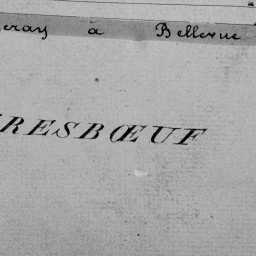 à Bellevue
RESBŒUF